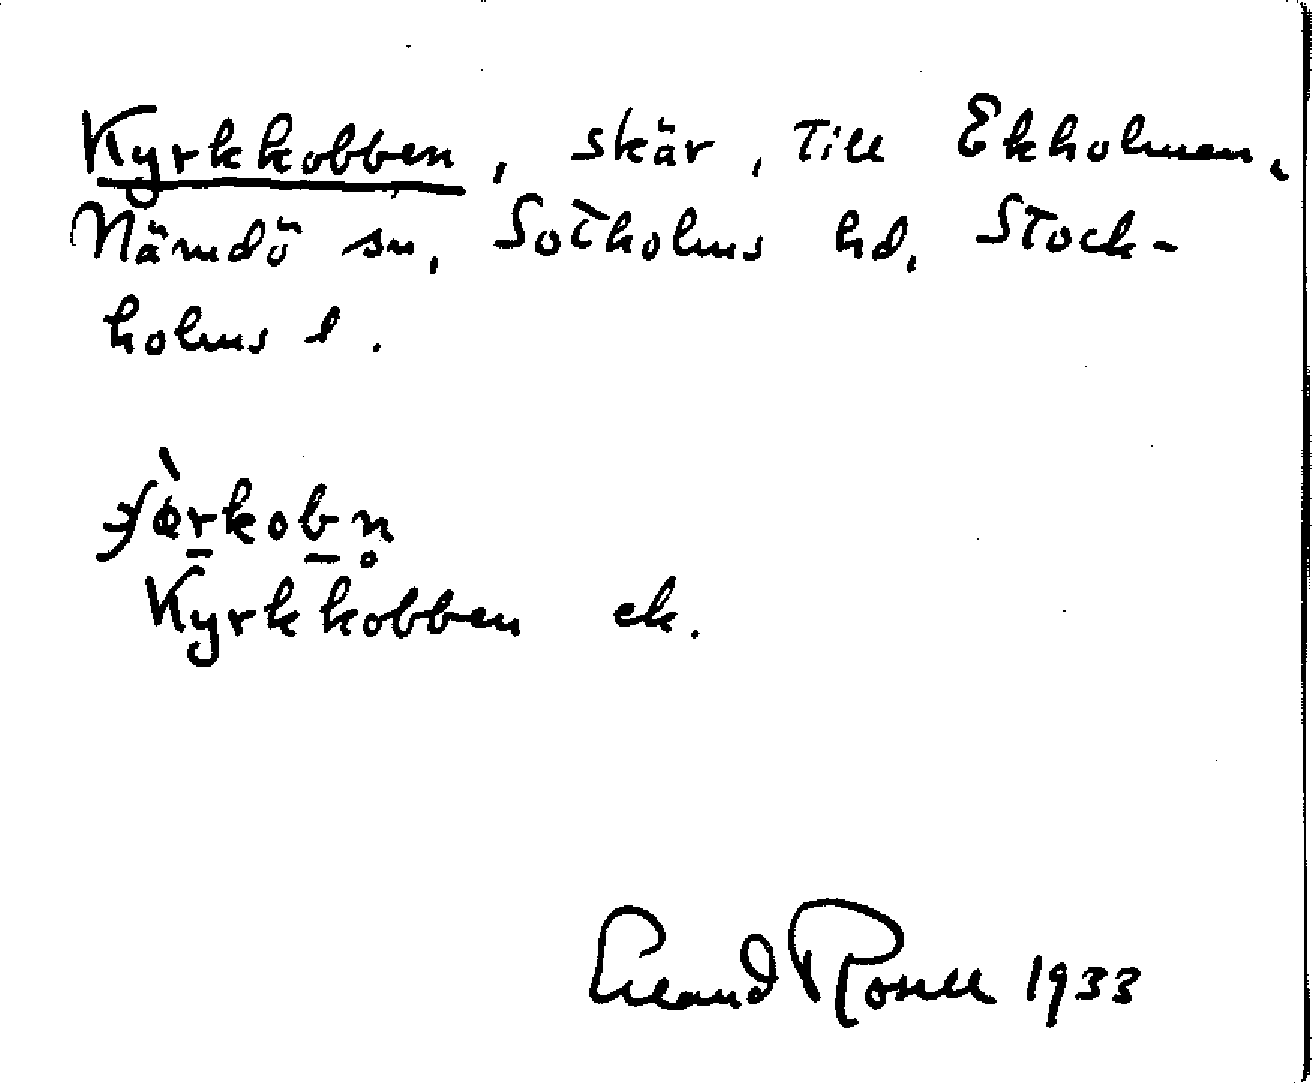 Kyrkkobben, skär, till Ekholmen,
Nämdö sn, Sotholms hd, Stock-
holms l.
Kyrkkobben ek.
Erland Rosell 1933